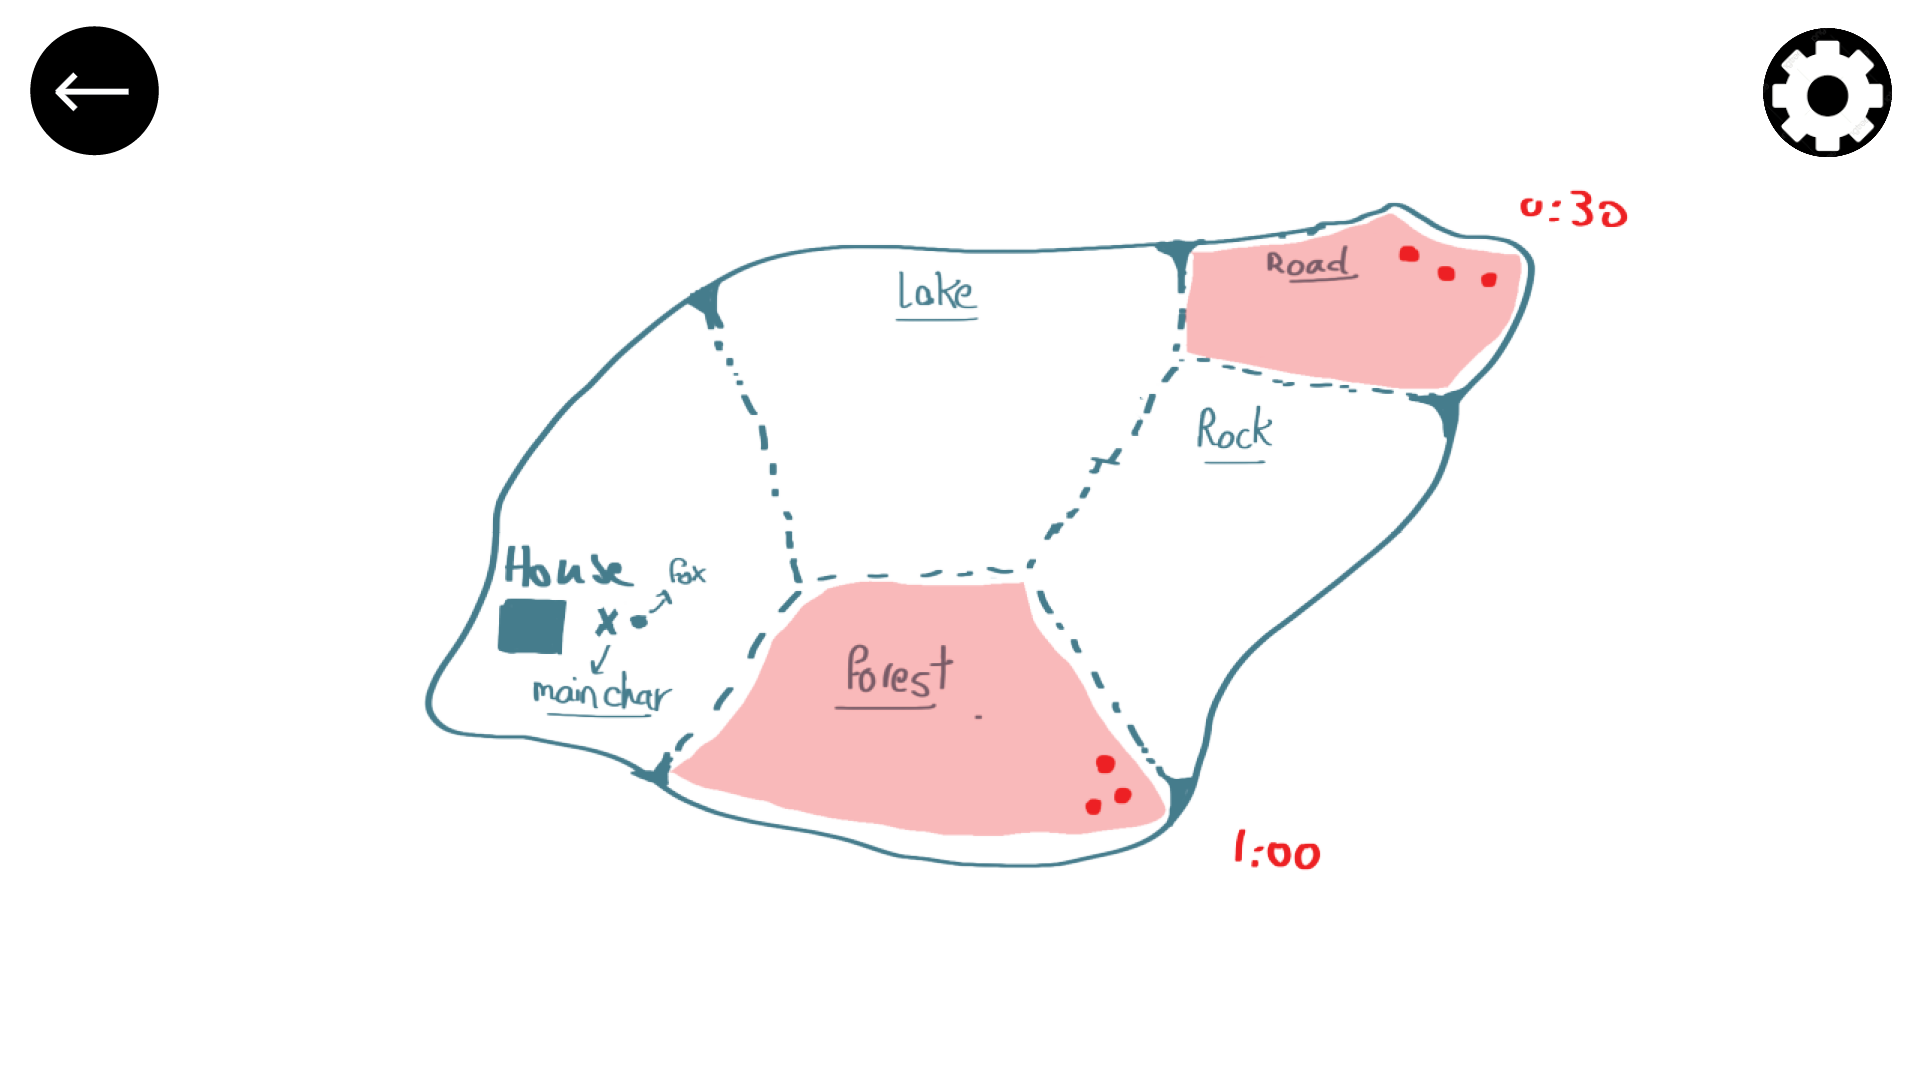 0:30
Road
Lake
Rock
House
fox
main char
Forest
1:00